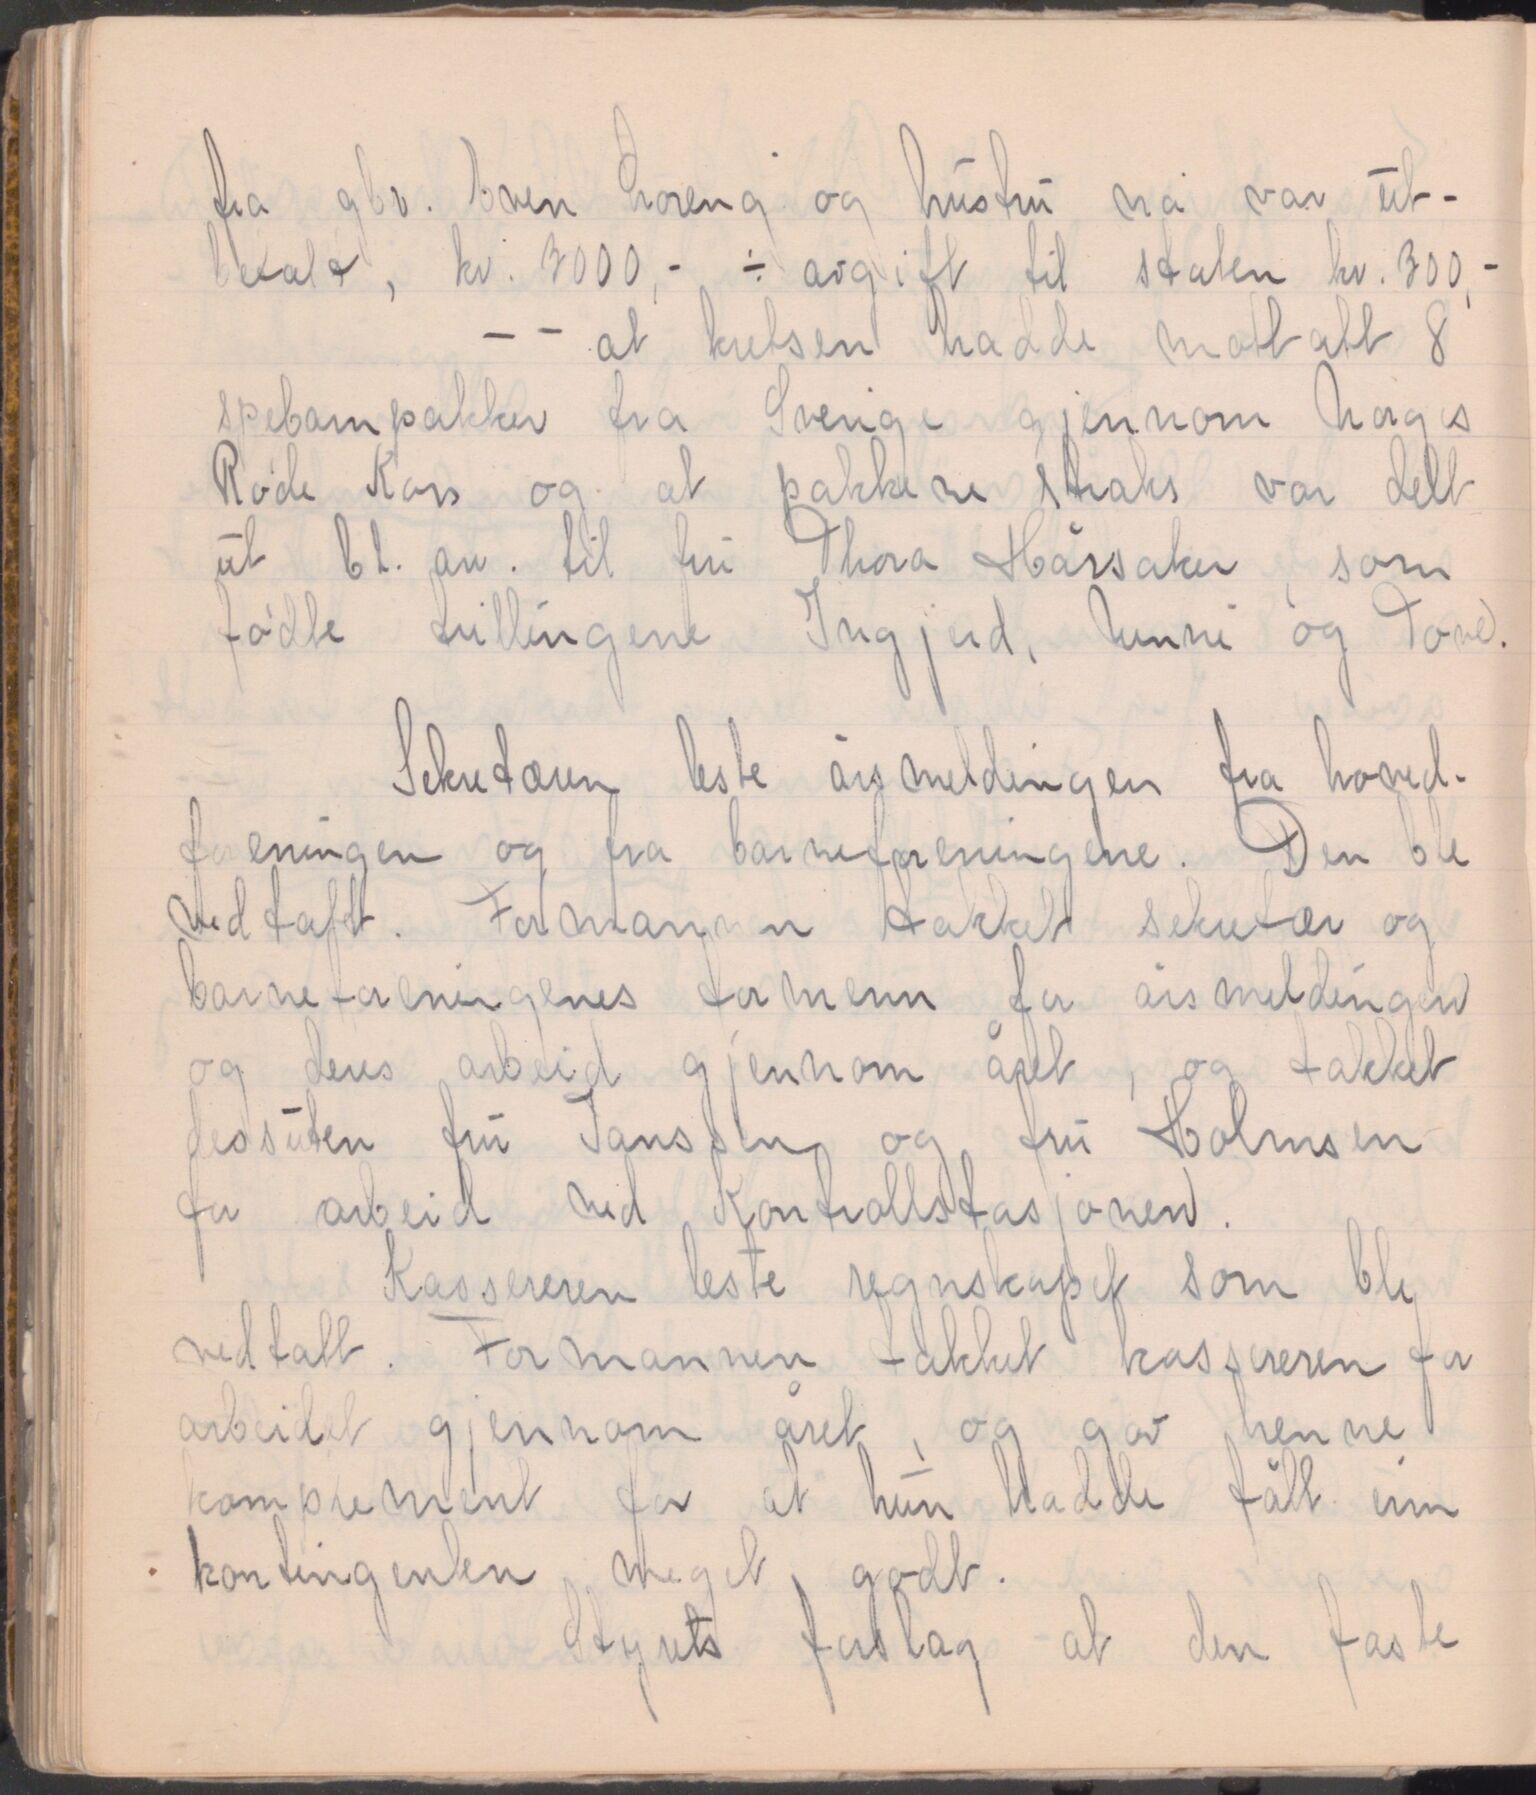 fra gbr. Even Loreng og hustru nå var ut-
betalt, kr. 3000,- ÷ avgift til staten kr. 300,-
-- at kretsen hadde mottatt 8
spebarnpakker fra Sverige gjennom Norges
Røde Kors og at pakkene straks var delt
ut bl. an. til fru Thora Hårsaker, som
fødte trillingene Ingjerd, Unni og Tove.
Sekretæren leste årsmeldingen fra hoved-
foreningen og fra barneforeningene. Den ble
vedtatt. Formannen takket sekretær og
barneforeningenes formenn for årsmeldingen
og deres arbeid gjennom året, og takket
dessuten fru Janssen og fru Holmsen
for arbeid ved Kontrollstasjonen.
Kassereren leste regnskapet som ble
vedtatt. Formannen takket kassereren for
arbeidet gjennom året, og gav henne
komplement for at hun hadde fått inn
kontingenten meget godt.
Styrets forslag at den faste